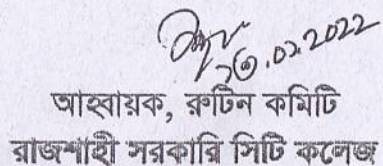 .02.2022
আহবায়ক, রুটিন কমিটি
রাজশাহী সরকারি সিটি কলেজ